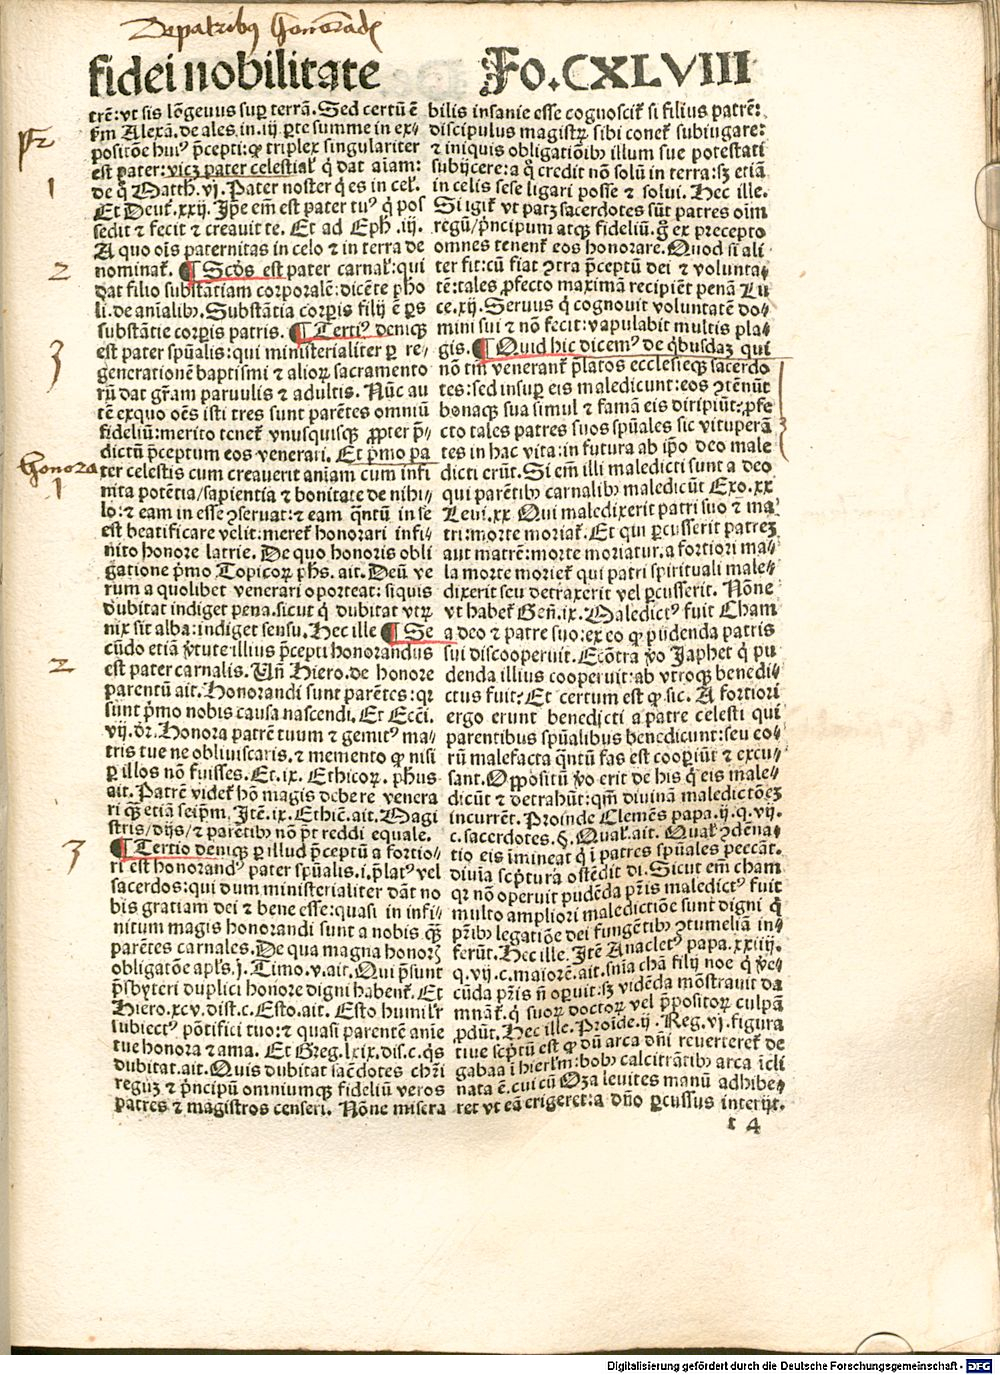 De patribus honorand
fidei nobilitate Fo.CXLVIII
trē: vt sis lōgeuus sup terrā. Sed certū ē
fm Alexā. de ales. in. iij ꝑte summe in ex⸗
positōe huiꝰ p̄cepti: ꝙ triplex singulariter
est pater: vicꝫ pater celestial̓ q̇ dat aīam:
de q̊ Matth. vj. Pater noster q̇ es in cel̓.
Et Deut̓. xxij. Ip̄e em̄ est pater tuꝰ q̇ pos
sedit ⁊ fecit ⁊ creauit te. Et ad Eph̓. iij.
A quo oīs paternitas in celo ⁊ in terra de
nominat̓. ¶ Scd̓s est pater carnal̓: qui
dat filio substātiam corporalē: dicēte pho
li. de anīalib. Substātia corpis filij ē ꝑs
substātie corpis patris. ¶ Tertiꝰ deniqꝫ
est pater spūalis: qui ministerialiter ꝑ re⸗
generationē baptismi ⁊ alioꝝ sacramento
rū dat grām paruulis ⁊ adultis. Nūc au
tē exquo oēs isti tres sunt parētes omniū
fideliū: merito tenet̓ vnusquisqꝫ ꝓpter p̄⸗
dictū p̄ceptum eos venerari. Et p̄mo pa
ter celestis cum creauerit aniam cum infi
nita potētia/sapientia ⁊ bonitate de nihi⸗
lo: ⁊ eam in esse ꝯseruat: ⁊ eam qn̄tū in se
est beatificare velit: meret̓ honorari infi⸗
nito honore latrie. De quo honoris obli
gatione p̄mo Topicoꝝ phs. ait. Deū ve
rum a quolibet venerari oporteat: siquis
dubitat indiget pena. sicut q̇ dubitat vtꝝ
nix sit alba: indiget sensu. Hec ille ¶ Se
cūdo etiā v̓tute illius p̄cepti honorandus
est pater carnalis. Vn̄ Hiero. de honore
parentū ait. Honorandi sunt parētes: qr
sunt p̄mo nobis causa nascendi. Et Ecci.
vij. dr̄. Honora patrē tuum ⁊ gemitꝰ ma⸗
tris tue ne obliuiscaris. ⁊ memento ꝙ nisi
ꝑ illos nō fuisses. Et. ix. Ethicoꝝ. phus
ait. Patrē videt̓ hō magis debere venera
ri qꝫ etiā seipm̄. Itē. ix. Ethiē. ait. Magi
stris/dijs/⁊ parētib nō p̄t reddi equale.
¶ Tertio deniqꝫ ꝑ illud p̄ceptū a fortio⸗
ri est honorandꝰ pater spūalis. i. p̄latꝰ vel
sacerdos: qui dum ministerialiter dāt no
bis gratiam dei ⁊ bene esse: quasi in infi⸗
nitum magis honorandi sunt a nobis qꝫ
parētes carnales. De qua magna honoꝝ
obligatōe apl̓s. j. Timo. v. ait. Qui p̄sunt
p̄sbyteri duplici honore digni habent̓. Et
Hiero. xcv. dist. c. Esto. ait. Esto humil̓r
subiectꝰ pōtifici tuo: ⁊ quasi parentē anīe
tue honora ⁊ ama. Et Greg. lxix. dis. c. q̇s
dubitat. ait. Quis dubitat saēdotes chr̄i
reguꝫ ⁊ p̄ncipū omniumqꝫ fideliū veros
patres ⁊ magistros censeri. Nōne misera
bilis insanie esse cognoscit̓ si filius patrē:
discipulus magistꝝ sibi conet̓ subiugare:
⁊ iniquis obligatiōib illum sue potestati
subijcere: a q̊ credit nō solū in terra: sꝫ etiā
in celis sese ligari posse ⁊ solui. Hec ille.
Si igit̓ vt patꝫ sacerdotes sūt patres oīm
regū/p̄ncipum atqꝫ fideliū. g̊ ex precepto
omnes tenent̓ eos honorare. Quod si ali
ter fit: cū fiat ꝯtra p̄ceptū dei ⁊ volunta⸗
tē: tales ꝓfecto maximā recipiēt penā Lu
ce. xij. Seruus q̇ cognouit voluntatē do⸗
mini sui ⁊ nō fecit: vapulabit multis pla⸗
gis. ¶ Quid hic dicemꝰ de q̇busdaꝫ qui
nō tm̄ venerant̓ p̄latos ecclesieqꝫ sacerdo
tes: sed insuꝑ eis maledicunt: eos ꝯtēnūt
bonaqꝫ sua simul ⁊ famā eis diripiūt: ꝓfe
cto tales patres suos spūales sic vituperā
tes in hac vita: in futura ab ip̄o deo male
dicti erūt. Si em̄ illi maledicti sunt a deo
qui parētib carnalib maledicūt Exo. xx
Leui. xx Qui maledixerit patri suo ⁊ ma⸗
tri: morte moriat̓. Et qui ꝑcusserit patreꝫ
aut matrē: morte moriatur. a fortiori ma⸗
la morte moriet̓ qui patri spirituali male⸗
dixerit seu detraxerit vel ꝑcusserit. Nōne
vt habet̓ Gen̄. ix. Maledictꝰ fuit Cham
a deo ⁊ patre suo: ex eo ꝙ pudenda patris
sui discooperuit. Ecōtra v̓o Japhet q̇ pu
denda illius cooperuit: ab vtroqꝫ benedi⸗
ctus fuit: Et certum est ꝙ sic. A fortiori
ergo erunt benedicti a patre celesti qui
parentibus spūalibus benedicunt: seu eo⸗
rū malefacta qn̄tū fas est cooꝑiūt ⁊ excu⸗
sant. Oppositū v̓o erit de his q̇ eis male⸗
dicūt ⁊ detrahūt: qm̄ diuinā maledictōeꝫ
incurrēt. Proinde Clemēs papa. ij. q. vij.
c. sacerdotes. §. Qual̓. ait. Qual̓ ꝯdēna⸗
tio eis īmineat q̇ ī patres spūales peccāt.
diuīa scp̄tura ostēdit di. Sicut em̄ cham
qr nō operuit pudēda pr̄is maledictꝰ fuit
multo ampliori maledictiōe sunt digni q̇
pr̄ib legatiōe dei fungētib ꝯtumeliā in⸗
ferūt. Hec ille. Itē Anacletꝰ papa. xxiiij.
q. vij. c. maiorē. ait. sn̄ia chā filij noe q̇ v̓e⸗
cūda pr̄is n̄ oꝑuit: sꝫ vidēda mōstrauit da
mnat̓. q̇ suoꝝ doctoꝝ vel p̄positoꝝ culpā
ꝓdūt. Hec ille. Proīde. ij. Reg. vj. figura
tiue scp̄tū est ꝙ dū arca dn̄i reuerteret̓ de
gabaa ī hierl̄m: bob calcitrātib arca īcli
nata ē. cui cū Oza leuites manū adhibe⸗
ret vt eā erigeret: a dn̄o ꝑcussus interijt.
r 4
1
2
3
Honora
1
2
3
Digitalisierung gefördert durch die Deutsche Forschungsgemeinschaft - DFG